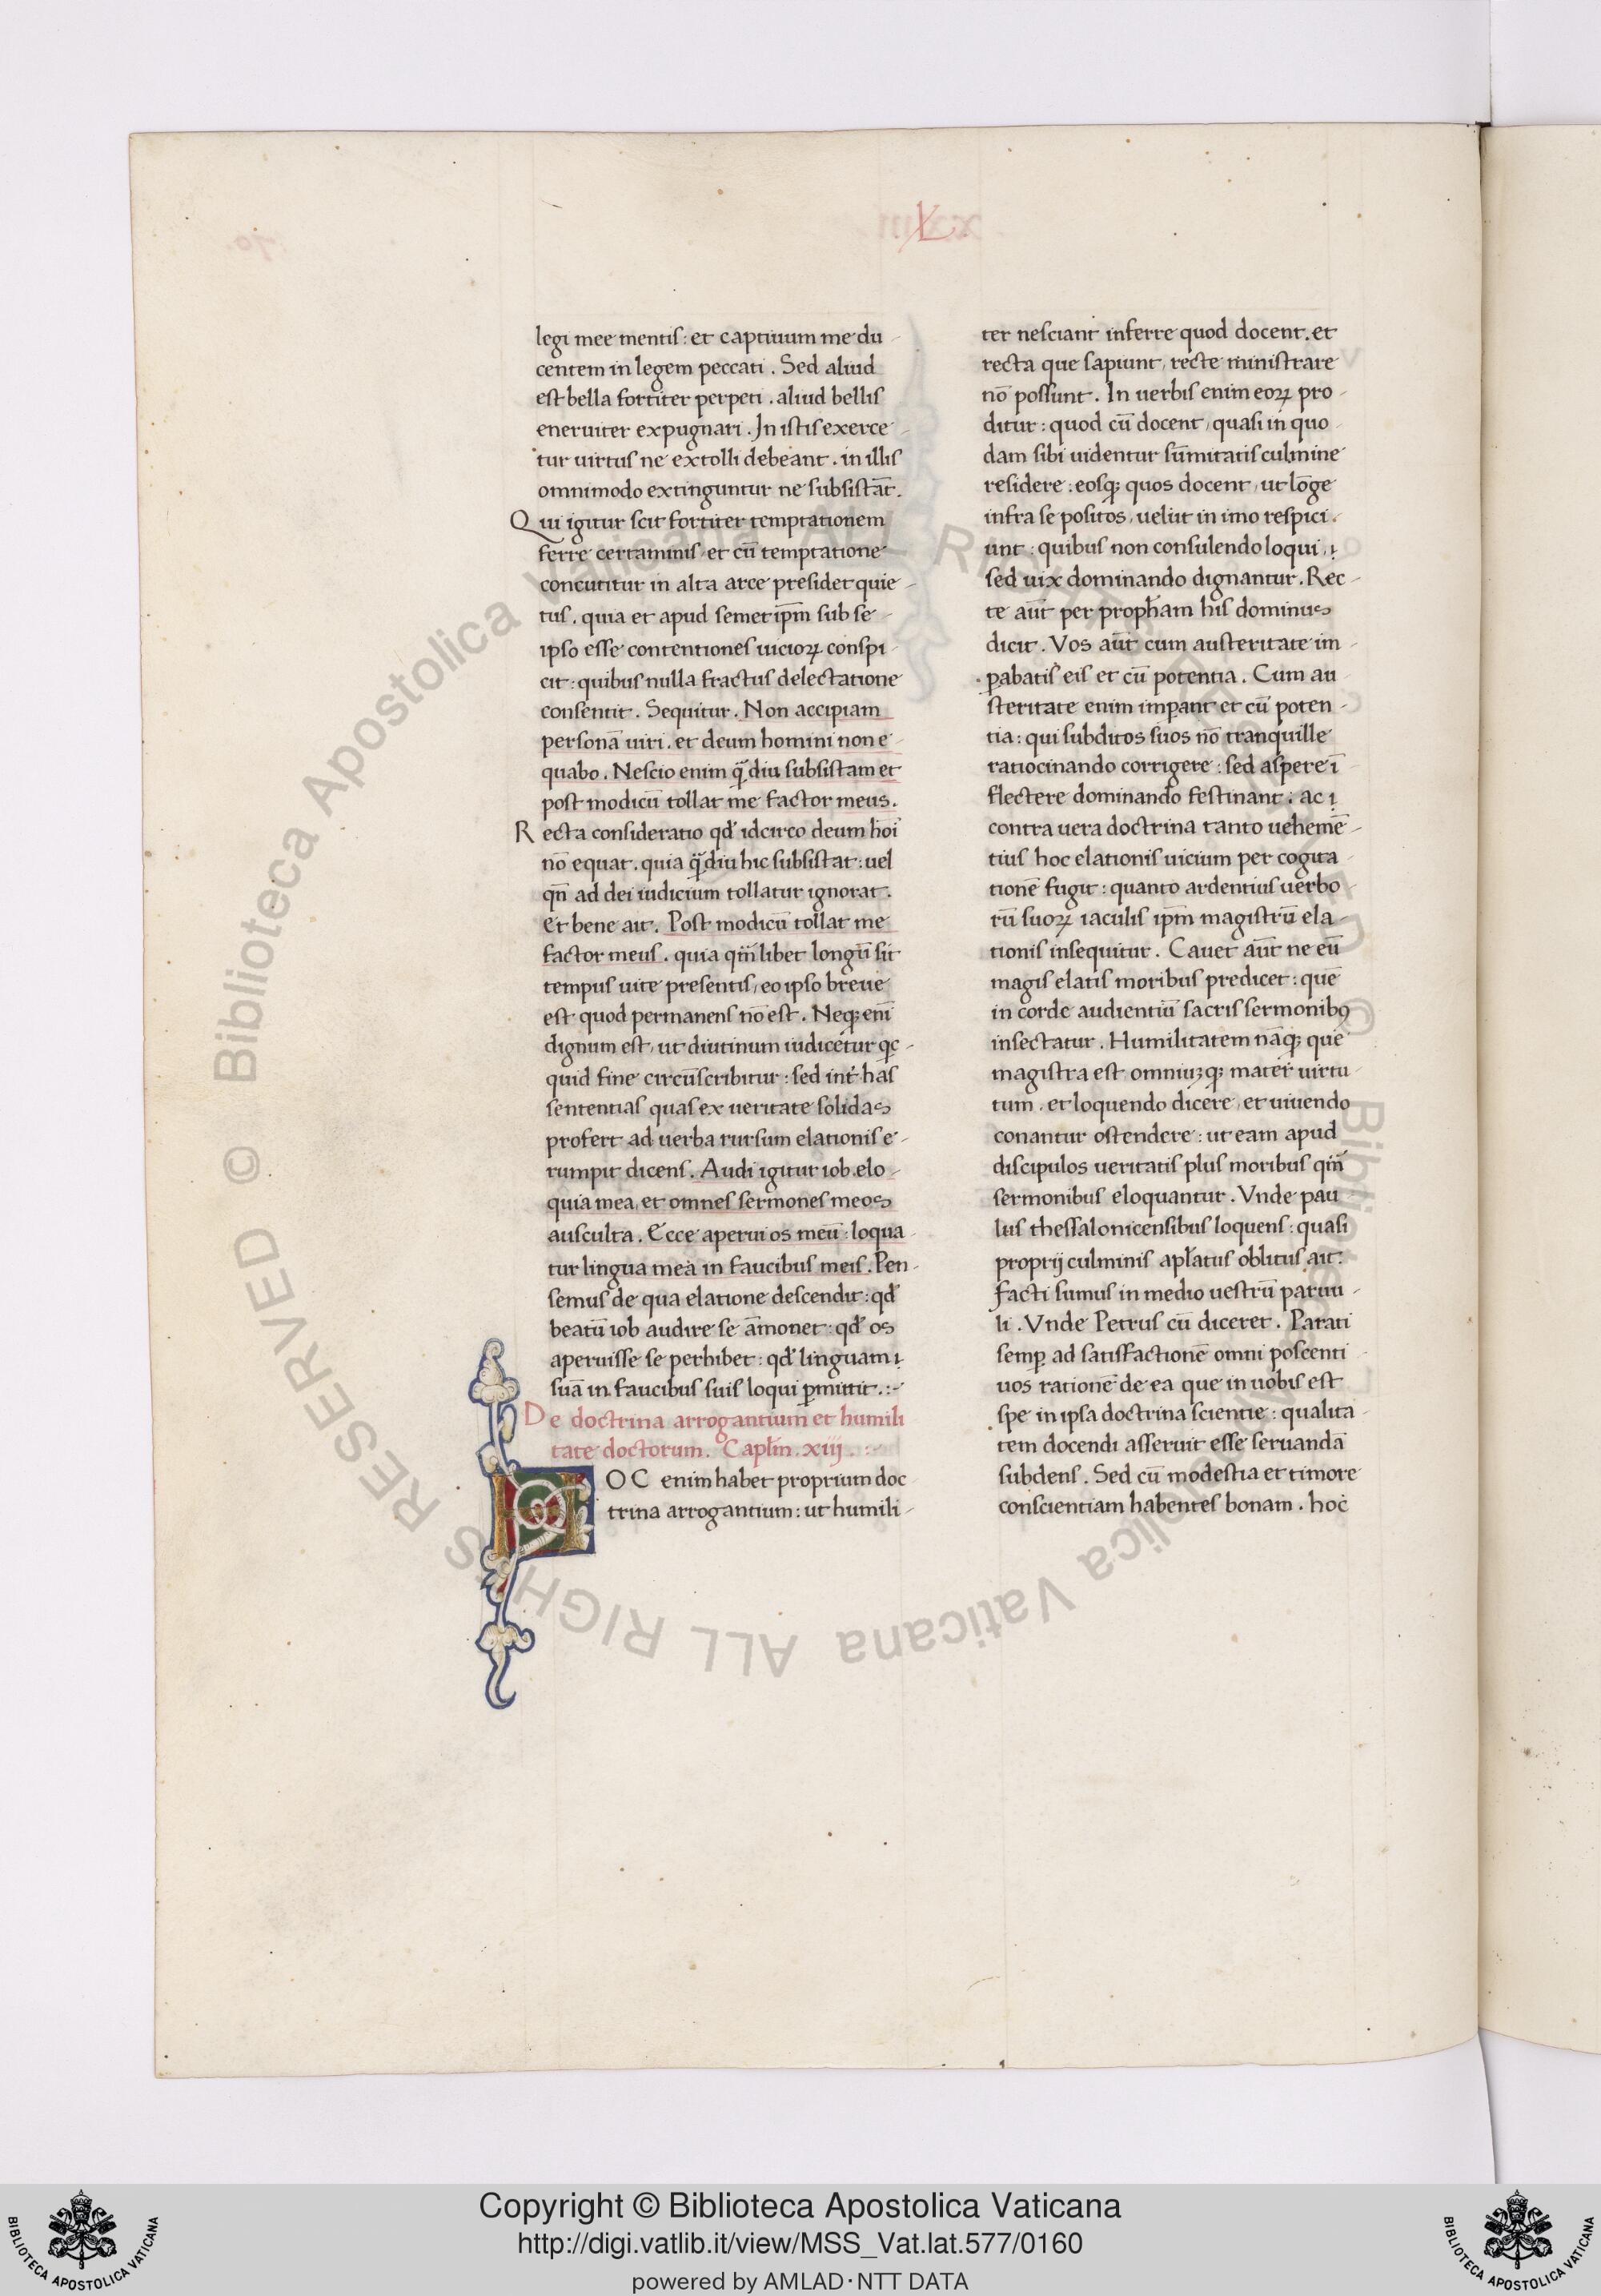 L
legi mee mentis: et captiuum me du
centem in legem peccati. Sed aliud
est bella fortiter perpeti. aliud bellis
eneruiter expugnari. In istis exerce
tur uirtus ne extolli debeant. in illis
omnimodo extinguntur ne subsistāt.
Qui igitur scit fortiter temptationem
ferre certaminis, et cū temptatione
concutitur in alta arce presidet quie
tus. quia et apud semetip̄m sub se
ipso esse contentiones uicioꝝ conspi
cit: quibus nulla fractus delectatione
consentit. Sequitur. Non accipiam
personā uiri. et deum homini non e
quabo. Nescio enim q̄diu subsistam et
post modicū tollat me factor meus.
Recta consideratio qd̓ idcirco deum hōi
nō equat. quia q̄diu hic subsistat: uel
qn̄ ad dei iudicium tollatur ignorat.
Et bene ait. Post modicū tollat me
factor meus. quia qm̄libet longū sit
tempus uite presentis, eo ipso breue
est quod permanens nō est. Neqꝫ eni̅
dignum est, ut diutinum iudicetur qc
quid fine circūscribitur: sed int̓ has
sententias quas ex ueritate solidas
profert ad uerba rursum elationis e
rumpit dicens. Audi igitur iob elo
quia mea, et omnes sermones meos
ausculta. Ecce aperui os meū: loqua
tur lingua mea in faucibus meis. Pen
semus de qua elatione descendit: qd̓
beatū iob audire se āmonet: qd̓ os
aperuisse se perhibet: qd̓ linguam
suā in faucibus suis loqui ꝑmittit.:
De doctrina arrogantium et humili
tate doctorum. Capl̄m. xiij.
HOC enim habet proprium doc
trina arrogantium: ut humili
ter nesciant inferre quod docent. et
recta que sapiunt, recte ministrare
nō possunt. In uerbis enim eoꝝ pro
ditur: quod cū docent, quasi in quo
dam sibi uidentur sūmitatis culmine
residere: eosqꝫ quos docent, ut lōge
infra se positos, uelut in imo respici
unt: quibus non consulendo loqui,
sed uix dominando dignantur. Rec
te aūt per proph̄am his dominus
dicit. Vos aūt cum austeritate im
ꝑabatis eis et cū potentia. Cum au
steritate enim imꝑant et cū poten
tia: qui subditos suos nō tranquille
ratiocinando corrigere: sed aspere ī
flectere dominando festinant: ac
contra uera doctrina tanto uehemē
tius hoc elationis uicium per cogita
tionē fugit: quanto ardentius uerbo
rū suoꝝ iaculis ip̄m magistrū ela
tionis insequitur. Cauet aūt ne eū
magis elatis moribus predicet: quē
in corde audientiū sacris sermonibꝰ
insectatur. Humilitatem nāqꝫ que
magistra est omniuꝫqꝫ mater uirtu
tum, et loquendo dicere, et uiuendo
conantur ostendere: ut eam apud
discipulos ueritatis plus moribus qm̄
sermonibus eloquantur. Vnde pau
lus thessalonicensibus loquens: quasi
proprij culminis apl̄atus oblitus ait.
facti sumus in medio uestrū paruu
li. Vnde Petrus cū diceret. Parati
semꝑ ad satisfactionē omni poscenti
uos rationē de ea que in uobis est
spe in ipsa doctrina scientie: qualita
tem docendi asseruit esse seruandā
subdens. Sed cū modestia et timore
conscientiam habentes bonam. hoc
© Biblioteca Apostolica Vaticana ALL RIGHTS RESERVED © Biblioteca Apostolica Vaticana ALL RIGHTS RESERVED
Copyright © Biblioteca Apostolica Vaticana
http://digi.vatlib.it/view/MSS_Vat.lat.577/0160
powered by AMLAD·NTT DATA
BIBLIOTECA APOSTOLICA VATICANA
BIBLIOTECA APOSTOLICA VATICANA